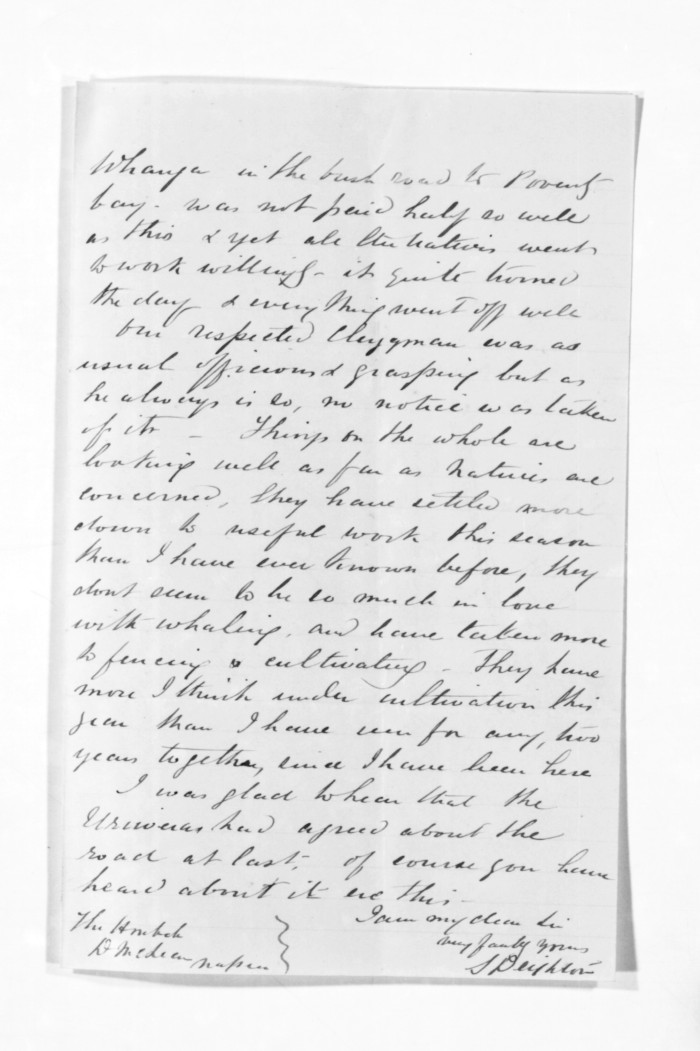 Whanga in the bush road to Poverty
bay. was not paid half so well
as this & yet all the natives went
to work willingly - it quite turned
the day & everything went off well
Our respected Clergyman was as
usual officious & grasping but as
he always is so, no notice was taken
of it - Things on the whole are
looking well as far as Natives are
concerned, they have settled more
down to useful work this season
than I have ever known before, they
dont seem to be so much in love
with whaling, and have taken more
to fencing & cultivating - They have
more I think under cultivation this
year than I have seen for any, two
years together, since I have been here
I was glad to hear that the
Uriweras had agreed about the
road at last, of course you have
heard about it ere this -
I am my dear Sir
very faithy yours
S Deighton
The Honble
D McLean
Napier